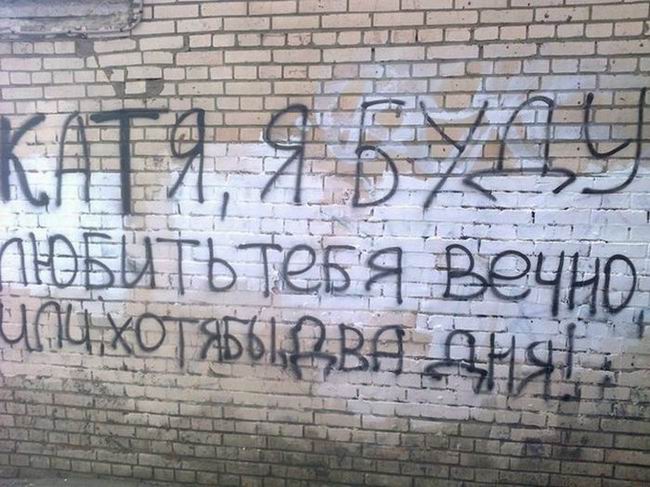 КАТЯ, Я БУДУ
ЛЮБИТЬ ТЕБЯ ВЕЧНО,
ИЛИ, ХОТЯБЫ, ДВА ДНЯ!